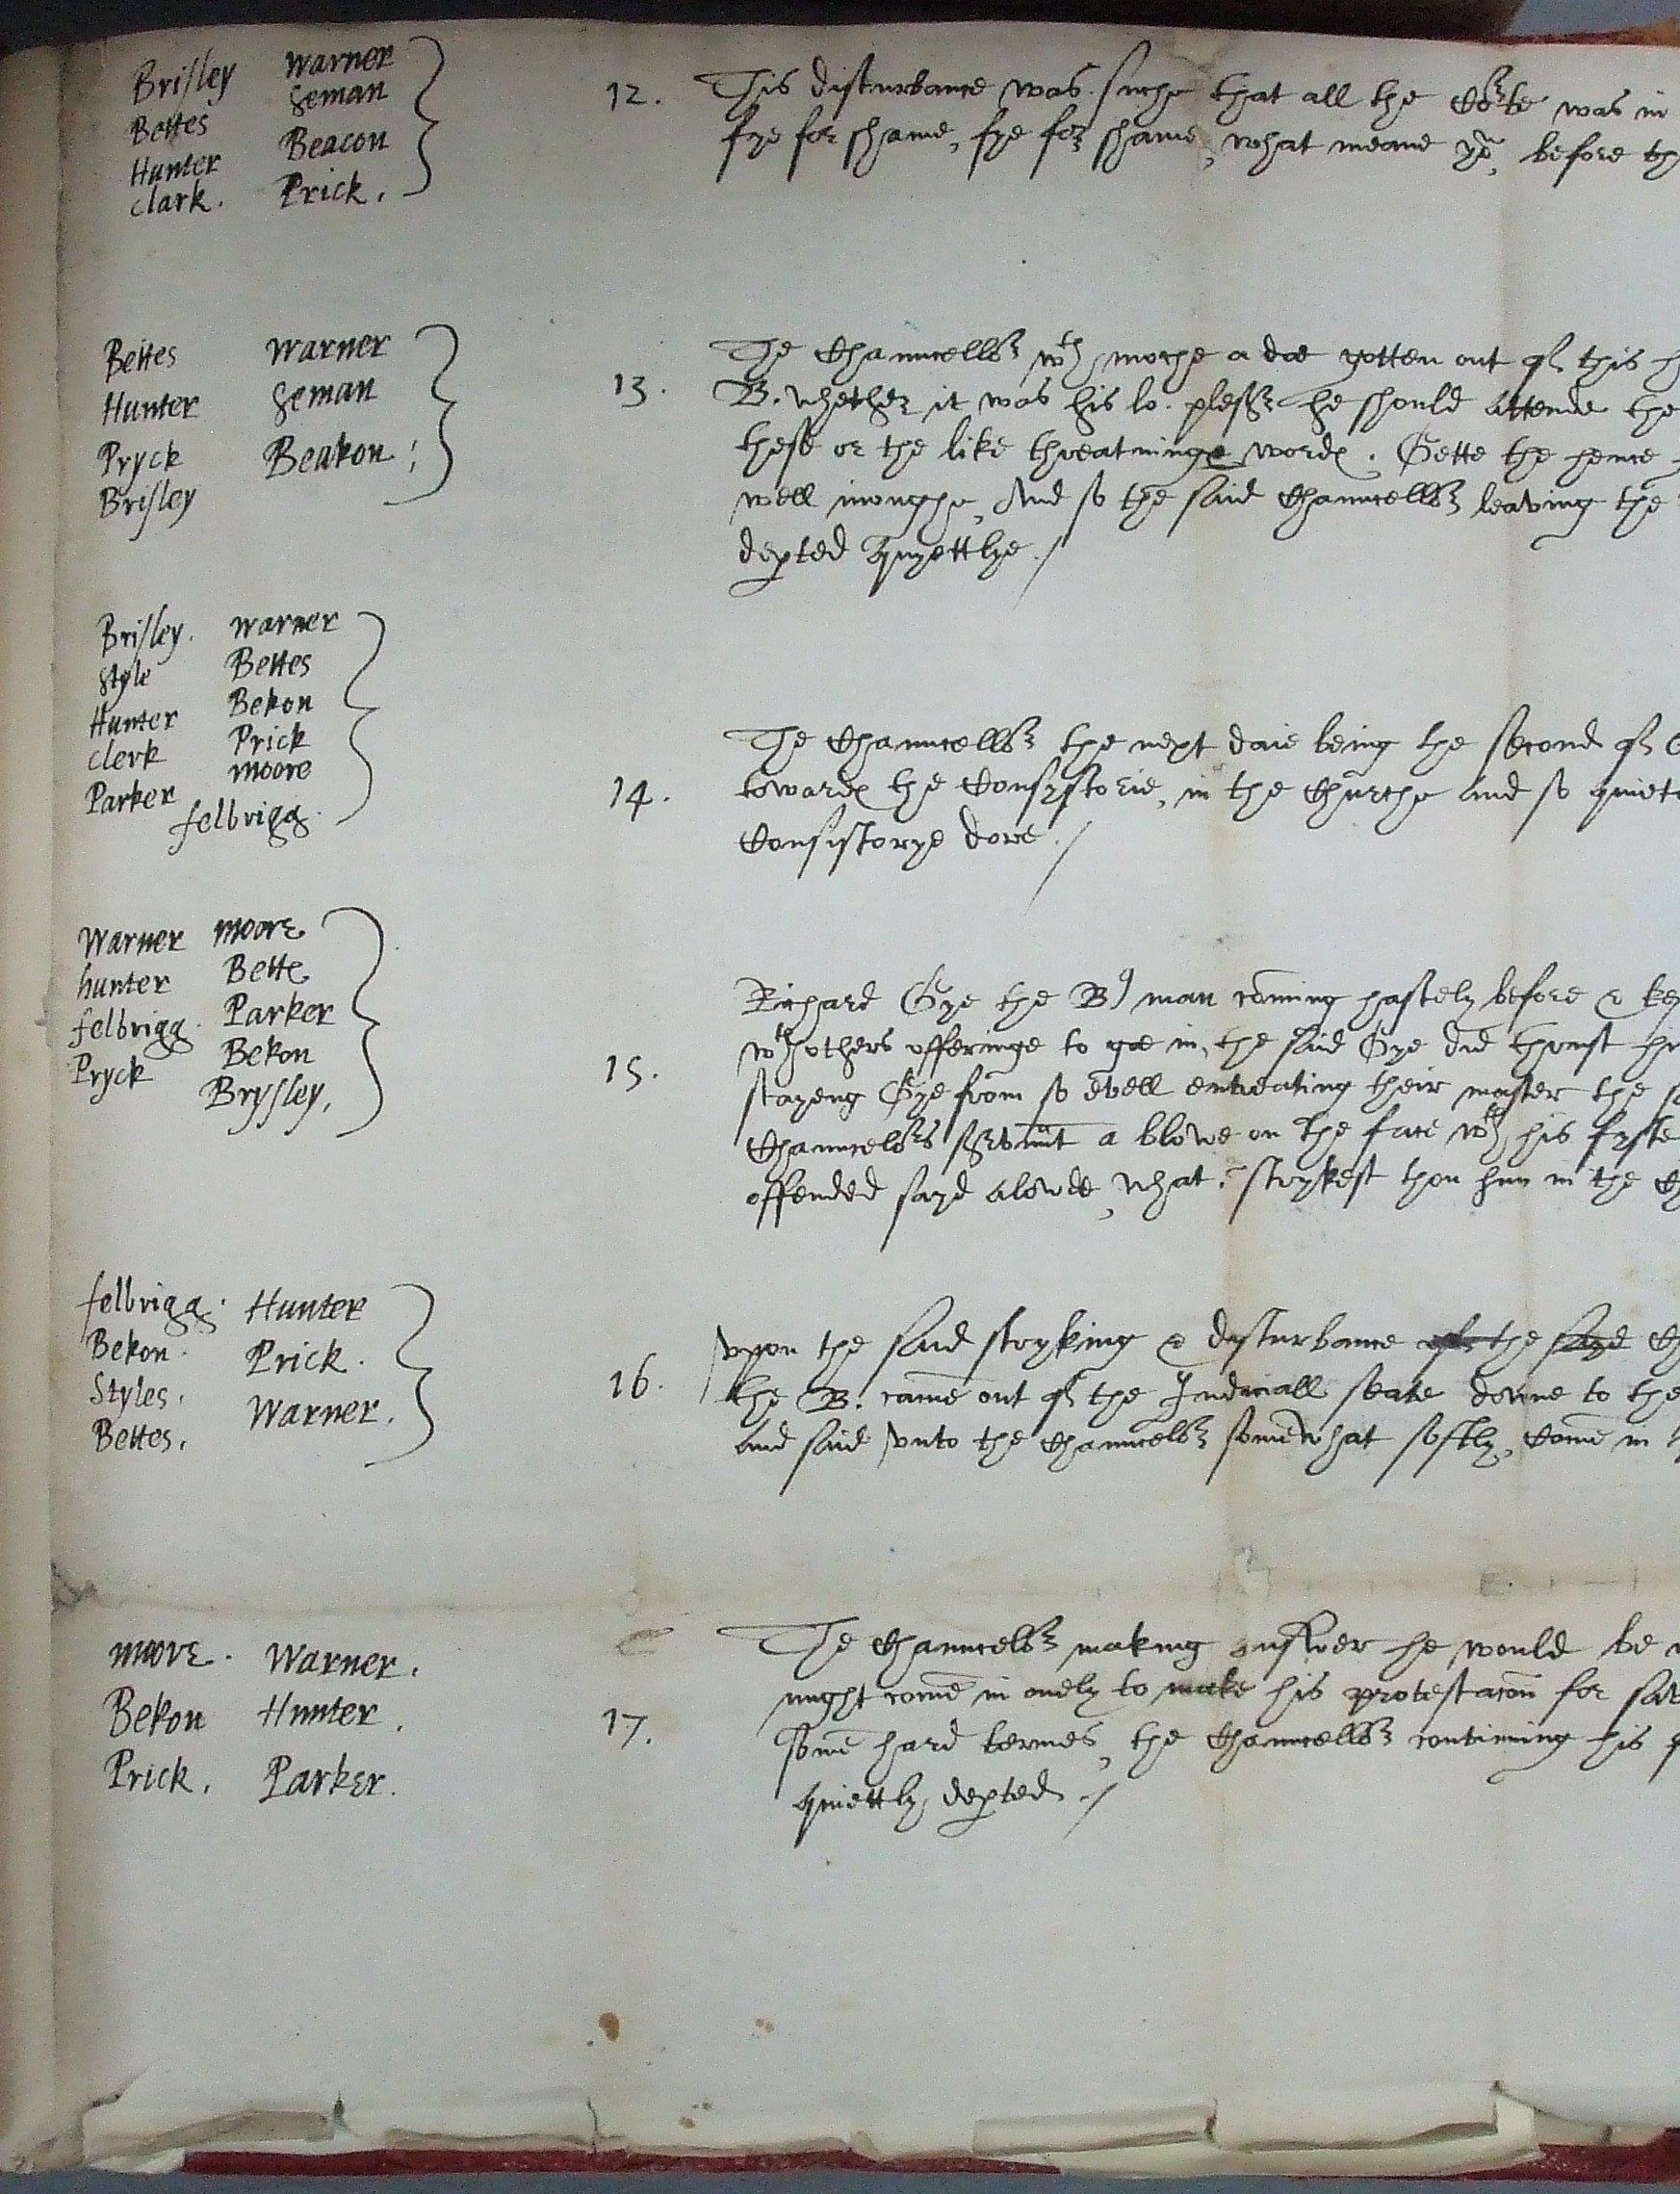 Brisley Warner
Bettes Seman
Hunter Beacon
Clark. Prick.
12. This disturbance was suche that all the Corte was in
fye for shame, fye for shame, what meane ye, before th
Bettes Warner
Hunter Seman
Pryck Beakon
Brisley
13. The Chauncellor wth moche a doe gotten out of this h
B. whether it was his lo. plesr he should attende the
these or the like threatninge wordes. Gette the hence
well inoughe, And so the said Chauncellor leaving the
depted quyettlye./
Brisley. Warner
Style Bettes
Hunter Bekon
Clerk Prick
Parker Moore
felbrigg.
14. The Chauncellor the next daie being the second of
towardes the Consystorie, in the Churche and so quiet
Consistorye dore./
Warner Moore
hunter Bettes
felbrigg. Parker
Pryck Bekon
Brysley,
15. Richard Gye the Bs man coming hastely before & ke
wth others offeringe to goe in, the said Gye did thrust hi
stayeng Gye from so evell entreating their master the s
Chauncelors servunt a blowe on the face wth his fyste
offended sayd alowde, what, strykest thou him in the Ch
felbrigg. Hunter
Bekon. Prick.
Styles. Warner.
Bettes.
16. Vpon the said stryking & dysturbance of the sayd Ch
the B. came out of the Judiciall seate downe to the
and said vnto the Chauncelor somewhat softly, Come in
Moore. Warner.
Bekon Hunter.
Prick. Parker.
17. The Chauncelor making answer he would be
might come in onely to make his protestacon for sa
some hard termes, the Chauncellor continuing his p
quiettly depted./